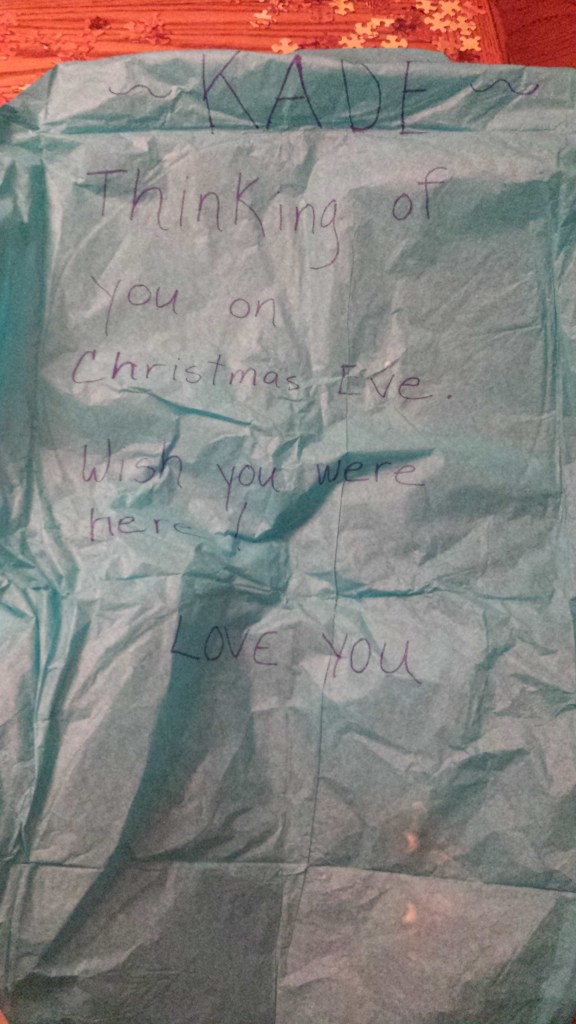 ~ KADE ~
Thinking of
you on
Christmas Eve.
Wish you were
here !
LOVE YOU